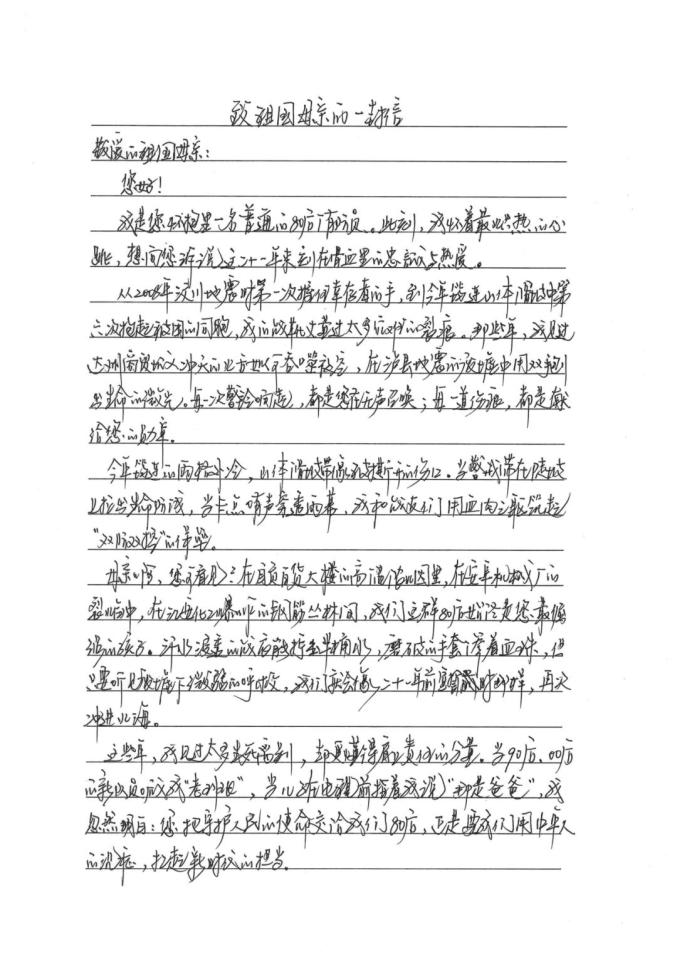 致祖国母亲的一封信
敬爱的祖国母亲：
您好！
我是您怀抱里一名普通的80后消防员。此刻，我怀着最炽热的心
跳，想向您诉说这二十一年来刻在骨血里的忠诚与热爱。
从2008年汶川地震时第一次握住幸存者的手，到今年筠连山体滑坡中第
六次抬起被困的同胞，我的战靴丈量过太多的裂痕。那些年，我见过
达州商贸城火冲天的火舌如何吞噬夜空，在泸县地震的废墟中用双手刨
出生命的微光。每一次警铃响起，都是您在无声召唤；每一道伤疤，都是献
给您的勋章。
今年筠连的雨格外冷，山体滑坡带像被撕开的伤口。当警戒带在陡坡
上拉出生命防线，当卡点哨声穿透雨幕，我和战友们用血肉之躯筑起
的保垒。
母亲啊，您可看见？在自贡百货大楼的高温浓烟里，在
裂缝中，在化工爆炸的钢筋丛林间，我们这群80后始终是您最倔
强的孩子。汗水浸透的战斗服能拧出半桶水，磨破的手套渗着血珠，但
只要听见废墟下微弱的呼救，我们就会像二十一年前宣誓时那样，再次
冲进火海。
这些年，我见过太多生死离别，却更懂得肩上责任的分量。当90后、00后
的新队员喊我"老班长"，当儿子在电视前指着我说"那是爸爸"，我
忽然明白：您把守护人民的使命交给我们80后，正是要我们用中年人
的沉稳，扛起新时代的担当。